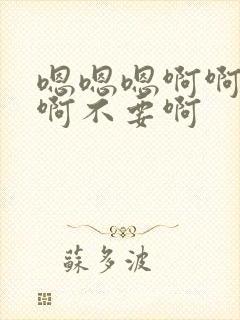 嗯嗯嗯啊啊
啊不要啊
蘇多波